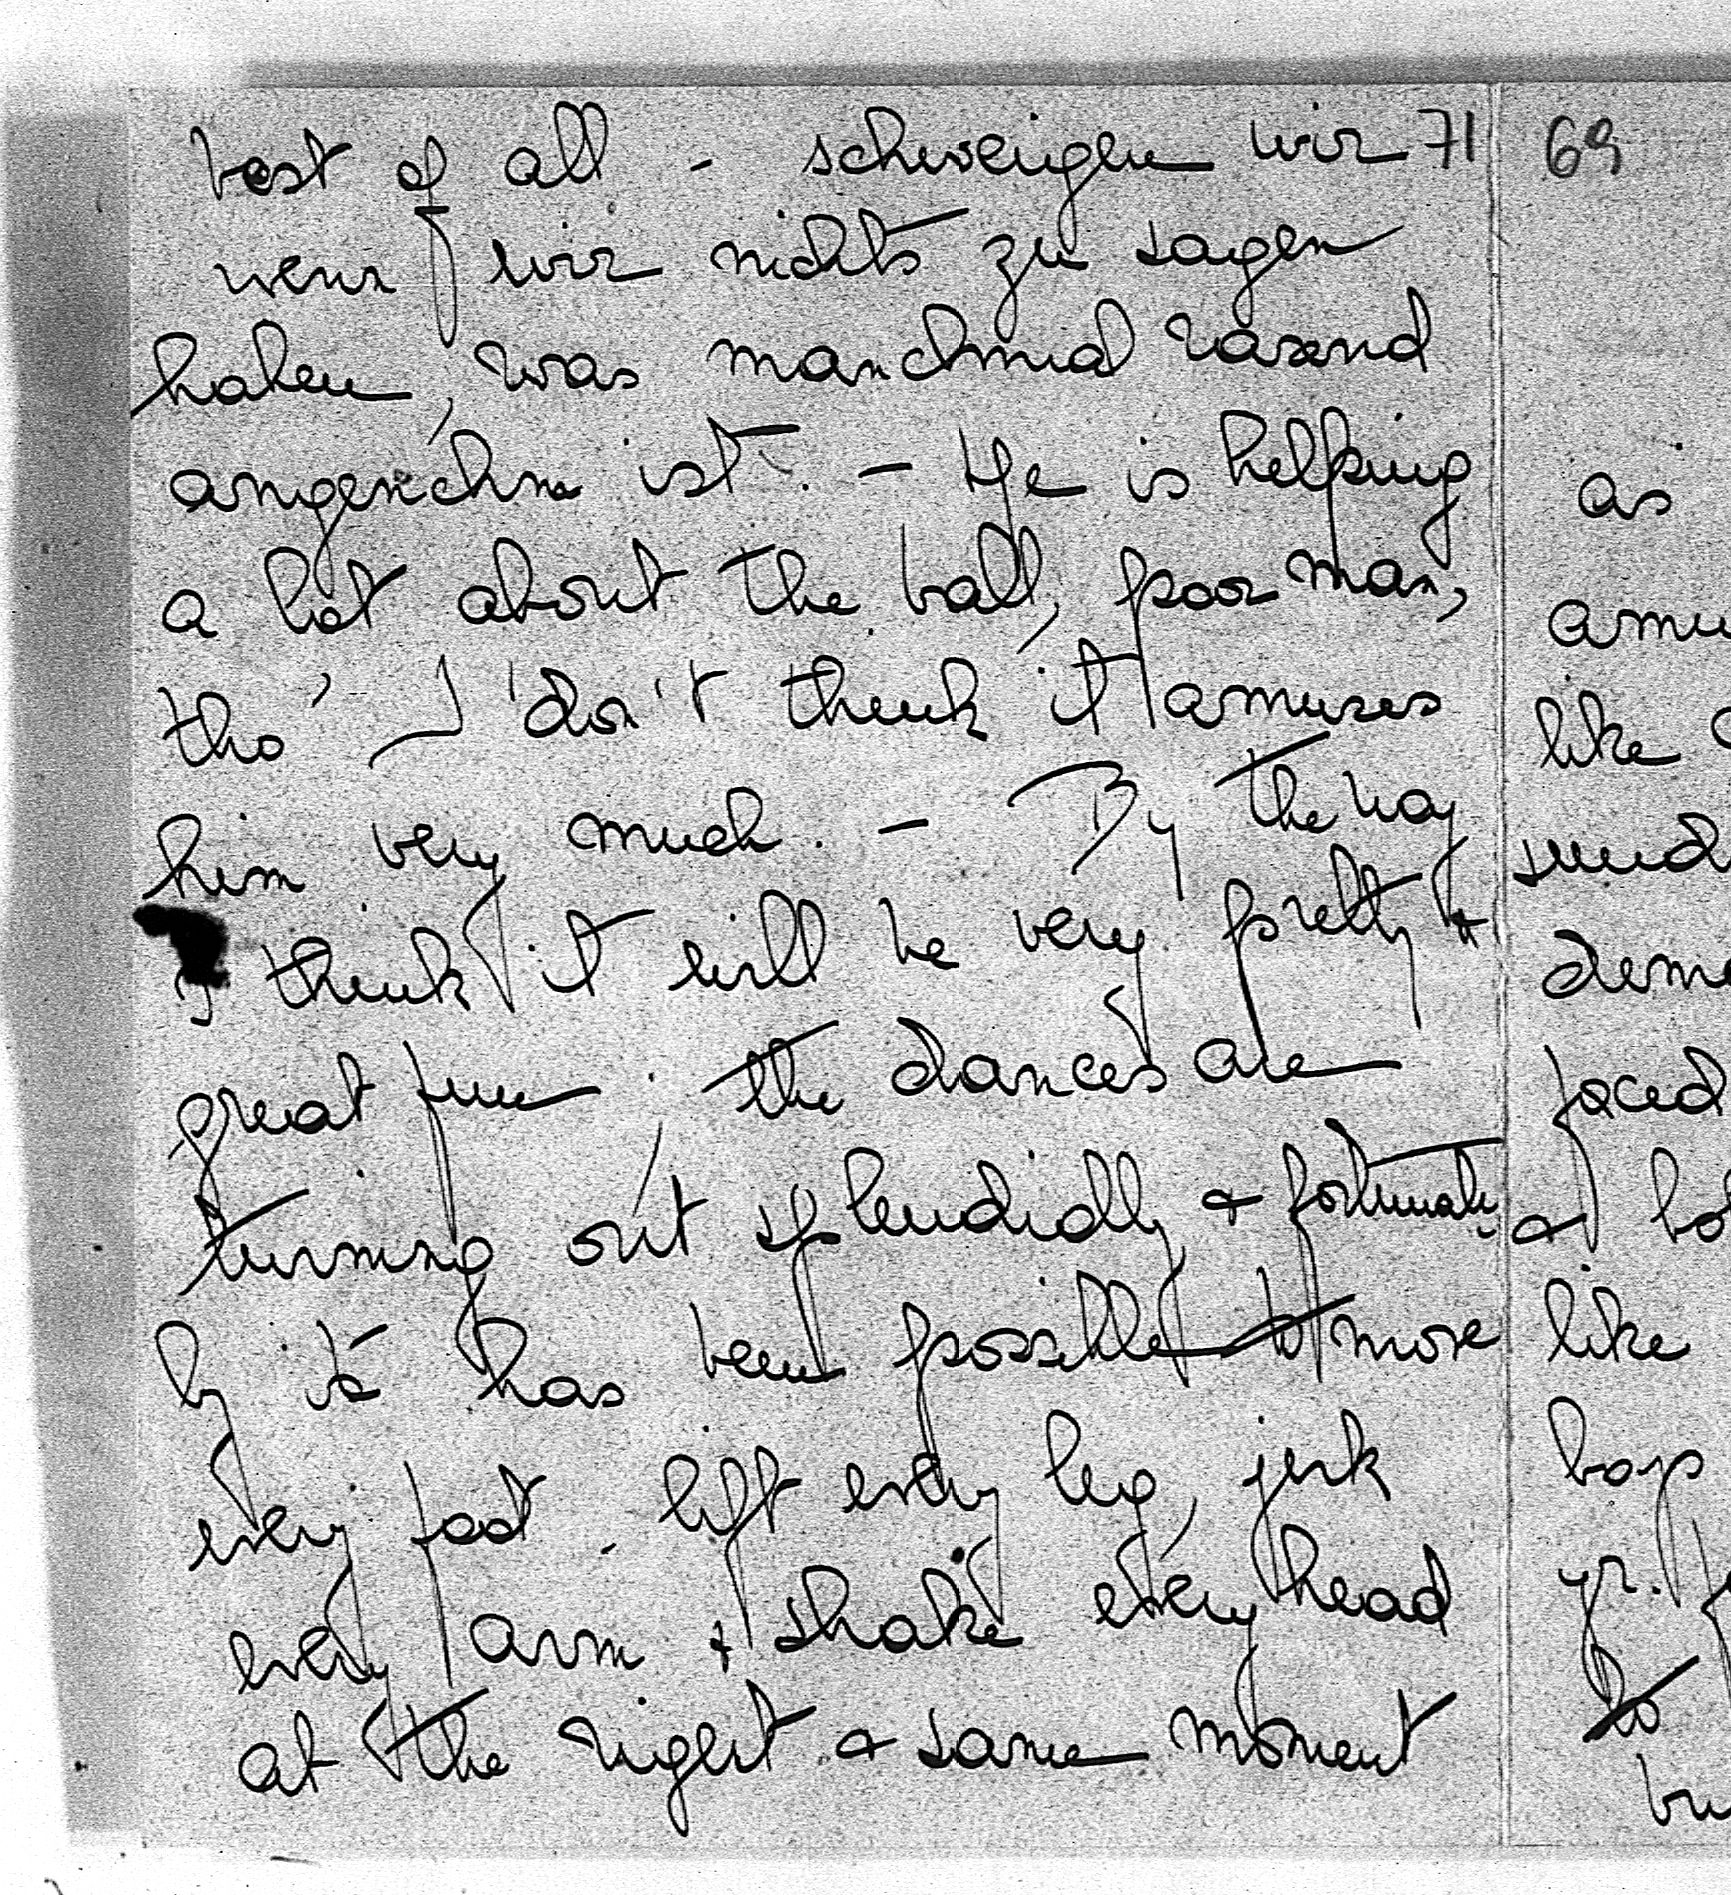 best of all - schweigen wir 71
wenn wir nichts zu sagen
haben, was manchmal rasend
angenehm ist. - He is helping
a lot about the ball, poor man,
tho' I don't think it amuses
him very much. - By the way
I think it will be very pretty &
great fun; the dances are
turning out splendidly, & fortunate-
ly it has been possible to more
every foot, lift every leg, jerk
every arm & shake every head
at the right & same moment
69
as
amu
like
demo
faced
like
boys
yr.
to
bu